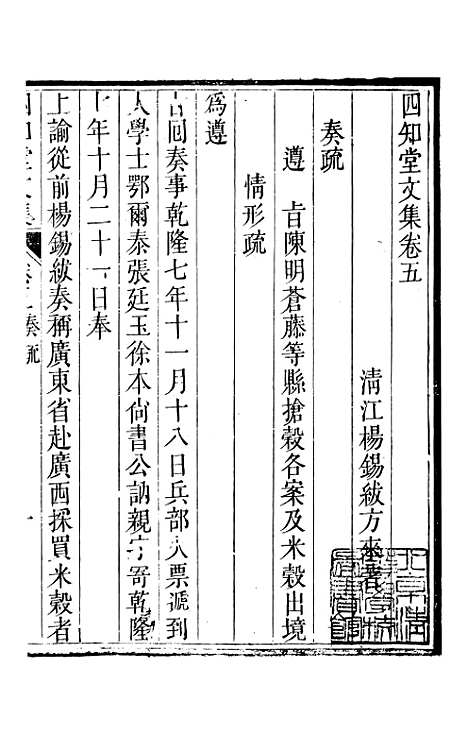 四知堂文集卷五
清江楊錫紱方來著
奏疏
遵 旨陳明蒼藤等縣搶穀各案及米穀出境
情形疏
爲遵
旨囘奏事乾隆七年十一月十八日兵部火票遞到
大學士鄂爾泰張廷玉徐本尚書公訥親字寄乾隆
七年十月二十一日奉
上諭從前楊錫紱奏稱廣東省赴廣西採買米穀者
四知堂文集 卷五奏疏 一